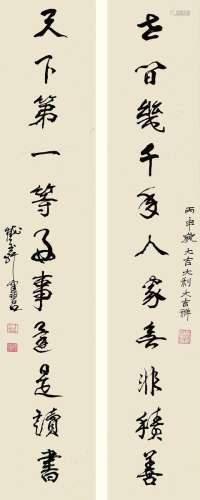 丙申歲大吉大利大吉祥
世間幾千年人家無非積善
天下第一等好事還是讀書